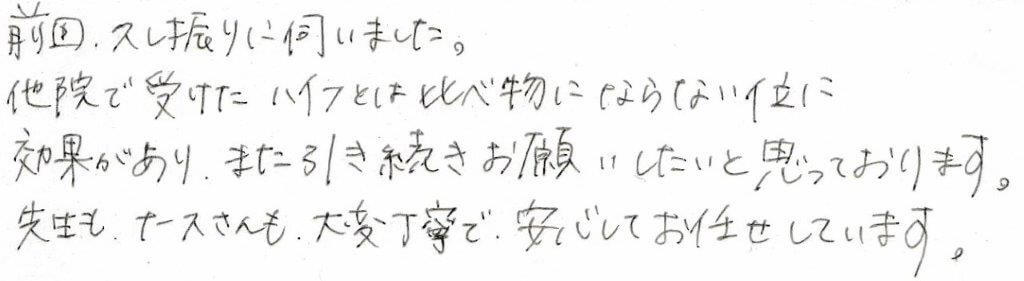 前回、久し振りに伺いました。
他院で受けた ハイフとは 比べ物に ならない位に
効果があり、また引き続きお願いしたいと思っております。
先生も、ナースさんも、大変丁寧で、安心してお任せしています。